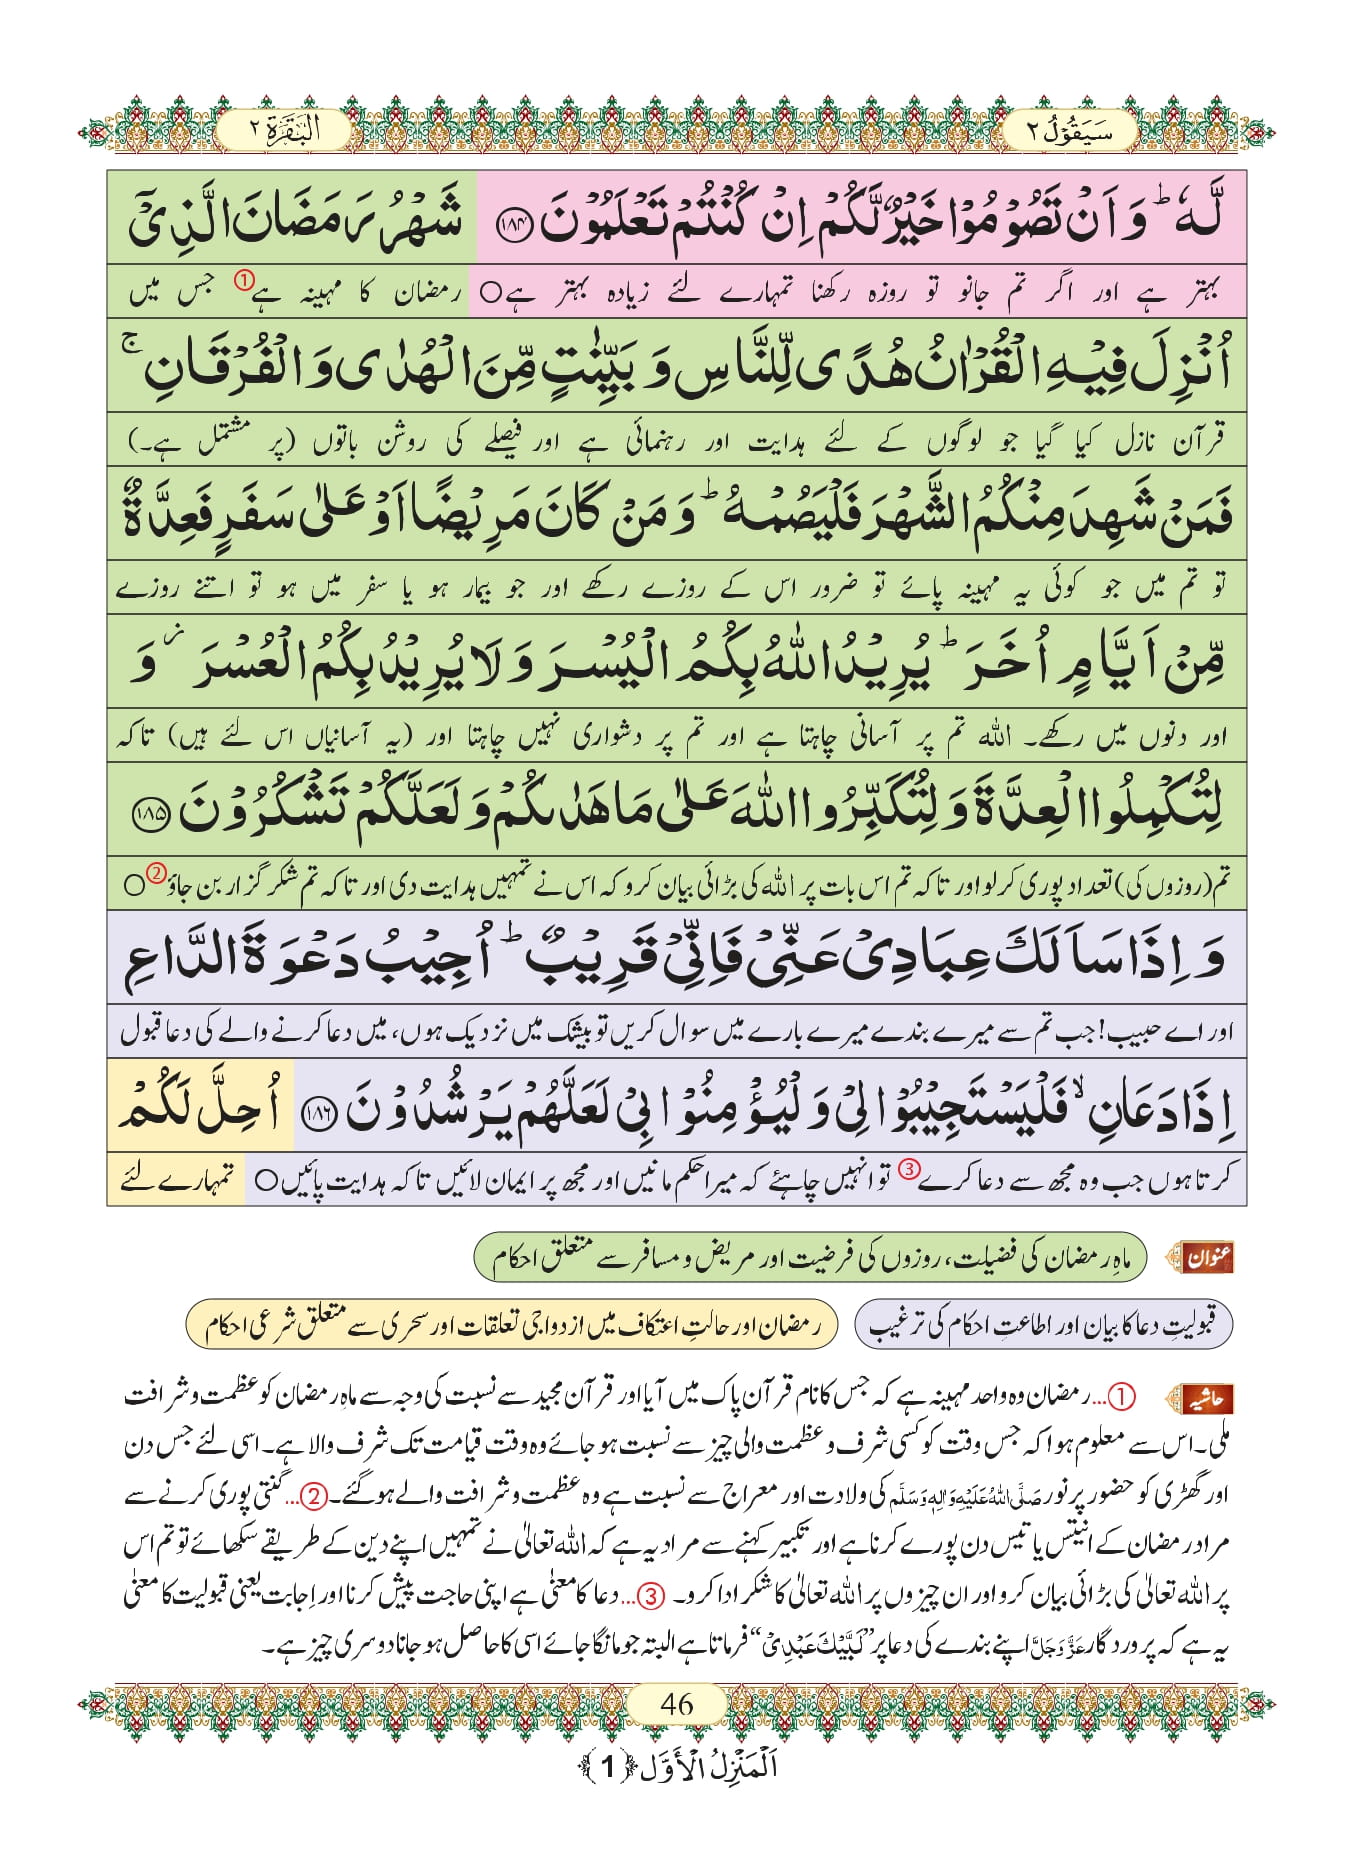 سَیَقُوْلُ ۲
الْبَقَرَۃ ۲
لَّهٗؕ وَ اَنْ تَصُوْمُوْا خَیْرٌ لَّكُمْ اِنْ كُنْتُمْ تَعْلَمُوْنَ ﴿۱۸۴﴾ شَهْرُ رَمَضَانَ الَّذِیْۤ
بہتر ہے اور اگر تم جانو تو روزہ رکھنا تمہارے لئے زیادہ بہتر ہے○ رمضان کا مہینہ ہے① جس میں
اُنْزِلَ فِیْهِ الْقُرْاٰنُ هُدًی لِّلنَّاسِ وَ بَیِّنٰتٍ مِّنَ الْهُدٰی وَ الْفُرْقَانِۚ
قرآن نازل کیا گیا جو لوگوں کے لئے ہدایت اور رہنمائی ہے اور فیصلے کی روشن باتوں (پر مشتمل ہے۔)
فَمَنْ شَهِدَ مِنْكُمُ الشَّهْرَ فَلْیَصُمْهُؕ وَ مَنْ كَانَ مَرِیْضًا اَوْ عَلٰی سَفَرٍ فَعِدَّةٌ
تو تم میں جو کوئی یہ مہینہ پائے تو ضرور اس کے روزے رکھے اور جو بیمار ہو یا سفر میں ہو تو اتنے روزے
مِّنْ اَیَّامٍ اُخَرَؕ یُرِیْدُ اللّٰهُ بِكُمُ الْیُسْرَ وَ لَا یُرِیْدُ بِكُمُ الْعُسْرَ٘ وَ
اور دنوں میں رکھے۔ اللہ تم پر آسانی چاہتا ہے اور تم پر دشواری نہیں چاہتا اور (یہ آسانیاں اس لئے ہیں) تاکہ
لِتُكْمِلُوا الْعِدَّةَ وَ لِتُكَبِّرُوا اللّٰهَ عَلٰی مَا هَدٰىكُمْ وَ لَعَلَّكُمْ تَشْكُرُوْنَ ﴿۱۸۵﴾
تم (روزوں کی) تعداد پوری کرلو اور تاکہ تم اس بات پر اللہ کی بڑائی بیان کرو کہ اس نے تمہیں ہدایت دی اور تاکہ تم شکر گزار بن جاؤ②○
وَ اِذَا سَاَلَكَ عِبَادِیْ عَنِّیْ فَاِنِّیْ قَرِیْبٌؕ اُجِیْبُ دَعْوَةَ الدَّاعِ
اور اے حبیب! جب تم سے میرے بندے میرے بارے میں سوال کریں تو بیشک میں نزدیک ہوں، میں دعا کرنے والے کی دعا قبول
اِذَا دَعَانِۙ فَلْیَسْتَجِیْبُوْا لِیْ وَ لْیُؤْمِنُوْا بِیْ لَعَلَّهُمْ یَرْشُدُوْنَ ﴿۱۸۶﴾ اُحِلَّ لَكُمْ
کرتا ہوں جب وہ مجھ سے دعا کرے③ تو انہیں چاہئے کہ میرا حکم مانیں اور مجھ پر ایمان لائیں تاکہ ہدایت پائیں○ تمہارے لئے
عنوان ماہِ رمضان کی فضیلت، روزوں کی فرضیت اور مریض و مسافر سے متعلق احکام
قبولیتِ دعا کا بیان اور اطاعتِ احکام کی ترغیب رمضان اور حالتِ اعتکاف میں ازدواجی تعلقات اور سحری سے متعلق شرعی احکام
حاشیہ ①... رمضان وہ واحد مہینہ ہے کہ جس کا نام قرآن پاک میں آیا اور قرآن مجید سے نسبت کی وجہ سے ماہِ رمضان کو عظمت و شرافت
ملی۔ اس سے معلوم ہوا کہ جس وقت کو کسی شرف و عظمت والی چیز سے نسبت ہو جائے وہ وقت قیامت تک شرف والا ہے۔ اسی لئے جس دن
اور گھڑی کو حضور پرنور صَلَّی اللہُ عَلَیْہِ وَاٰلِہٖ وَسَلَّم کی ولادت اور معراج سے نسبت ہے وہ عظمت و شرافت والے ہوگئے۔ ②... گنتی پوری کرنے سے
مراد رمضان کے انتیس یا تیس دن پورے کرنا ہے اور تکبیر کہنے سے مراد یہ ہے کہ اللہ تعالیٰ نے تمہیں اپنے دین کے طریقے سکھائے تو تم اس
پر اللہ تعالیٰ کی بڑائی بیان کرو اور ان چیزوں پر اللہ تعالیٰ کا شکر ادا کرو۔ ③... دعا کا معنیٰ ہے اپنی حاجت پیش کرنا اور اِجابت یعنی قبولیت کا معنیٰ
یہ ہے کہ پروردگار عَزَّوَجَلَّ اپنے بندے کی دعا پر ”لَبَّیْكَ عَبْدِیْ“ فرماتا ہے البتہ جو مانگا جائے اسی کا حاصل ہو جانا دوسری چیز ہے۔
46
اَلْمَنْزِلُ الْاَوَّل ﴿1﴾